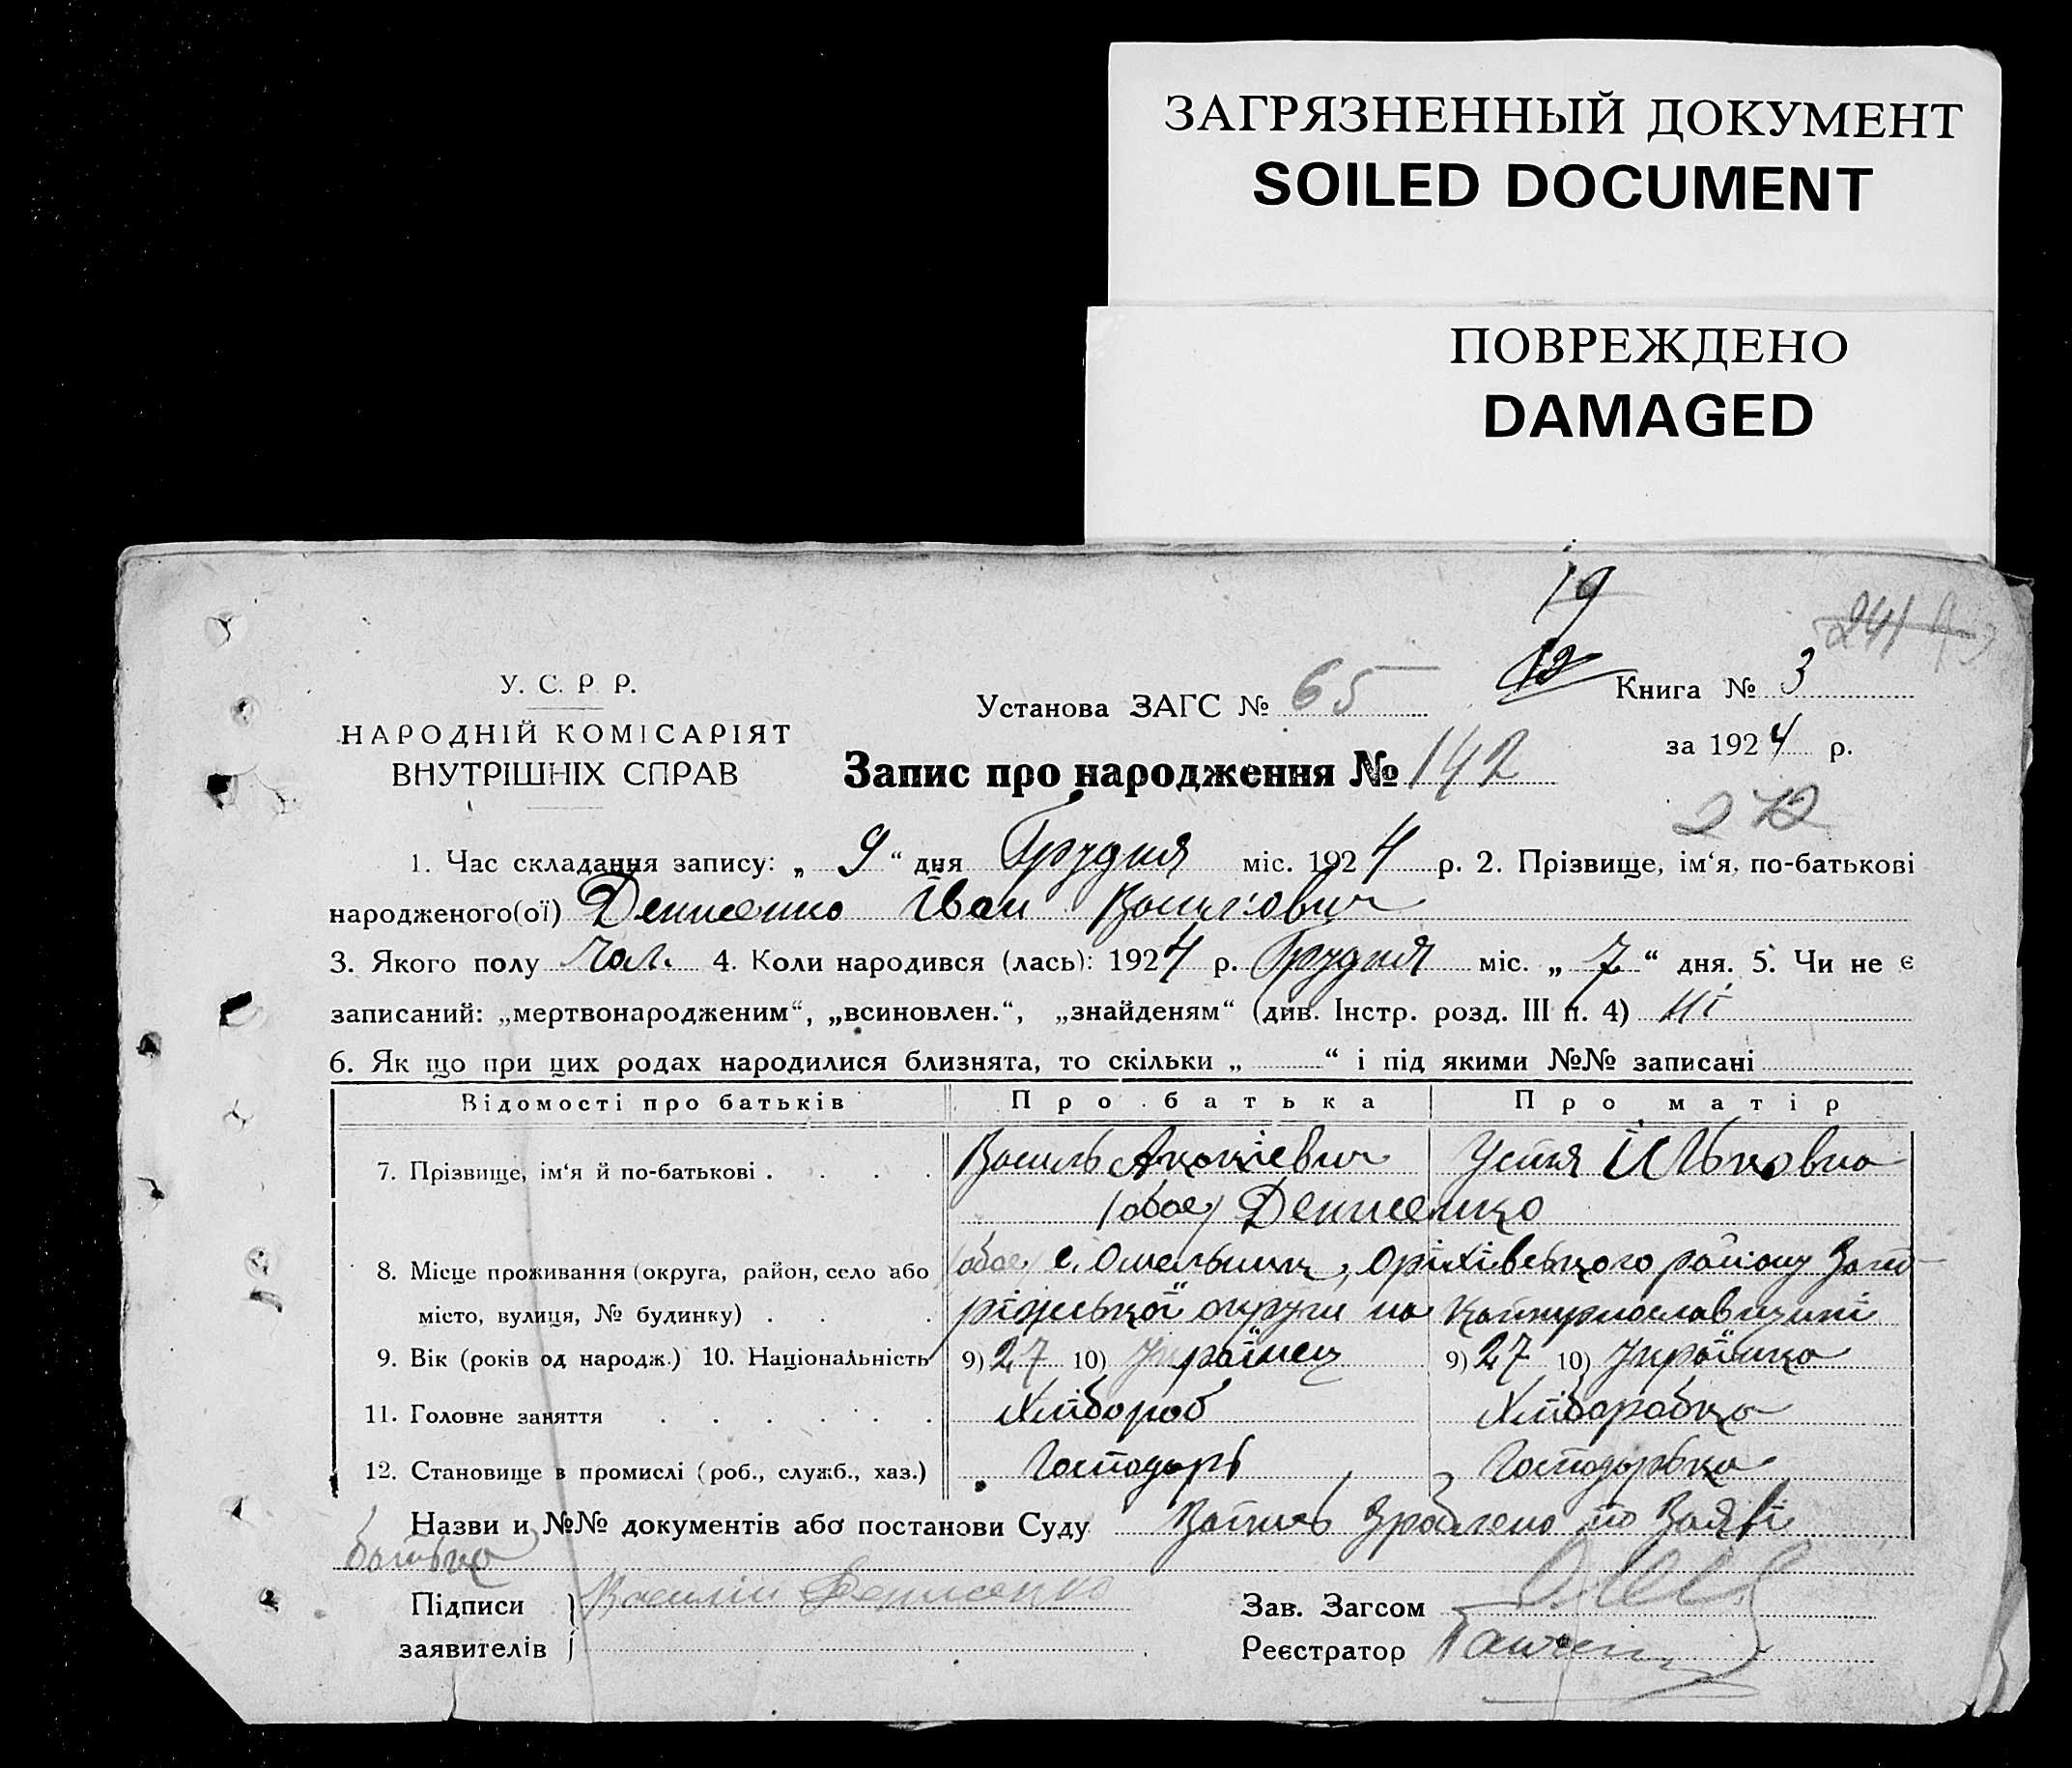 ЗАГРЯЗНЕННЫЙ ДОКУМЕНТ
SOILED DOCUMENT
ПОВРЕЖДЕНО
DAMAGED
19
241
У. С. Р Р.
НАРОДНІЙ КОМІСАРІЯТ
ВНУТРІШНІХ СПРАВ
Установа ЗАГС № 65
12
Книга № 3
за 1924 р.
Запис про народження № 142
272
1. Час складання запису: „ 9 “ дня Грудня міс. 1924 р. 2. Прізвище, ім‘я, по-батькові
народженого(ої) Денисенко Іван Васильович
3. Якого полу чол. 4. Коли народився (лась): 1924 р. Грудня міс. „ 7 “ дня. 5. Чи не є
записаний: „мертвонародженим“, „всиновлен.“, „знайденям“ (див. Інстр. розд. III п. 4) ні
6. Як що при цих родах народилися близнята, то скільки „ “ і під якими №№ записані
Відомості про батьків Про батька Про матір
7. Прізвище, ім‘я й по-батькові Василь Акакієвич Устя Ильковна
(обое) Денисенко
8. Місце проживання (округа, район, село або (обое) с. Омельник, Оріхівського району Запо-
місто, вулиця, № будинку) ріжської округи на Катеринославщині
9. Вік (років од народж.) 10. Національність 9) 27 10) Українец 9) 27 10) Українка
11. Головне заняття Хлібороб Хліборобка
12. Становище в промислі (роб., служб., хаз.) Господарь Господарька
Назви и №№ документів або постанови Суду Запись зроблено по заяві
батька
Підписи Василий Денисенко
заявителів
Зав. Загсом
Реєстратор